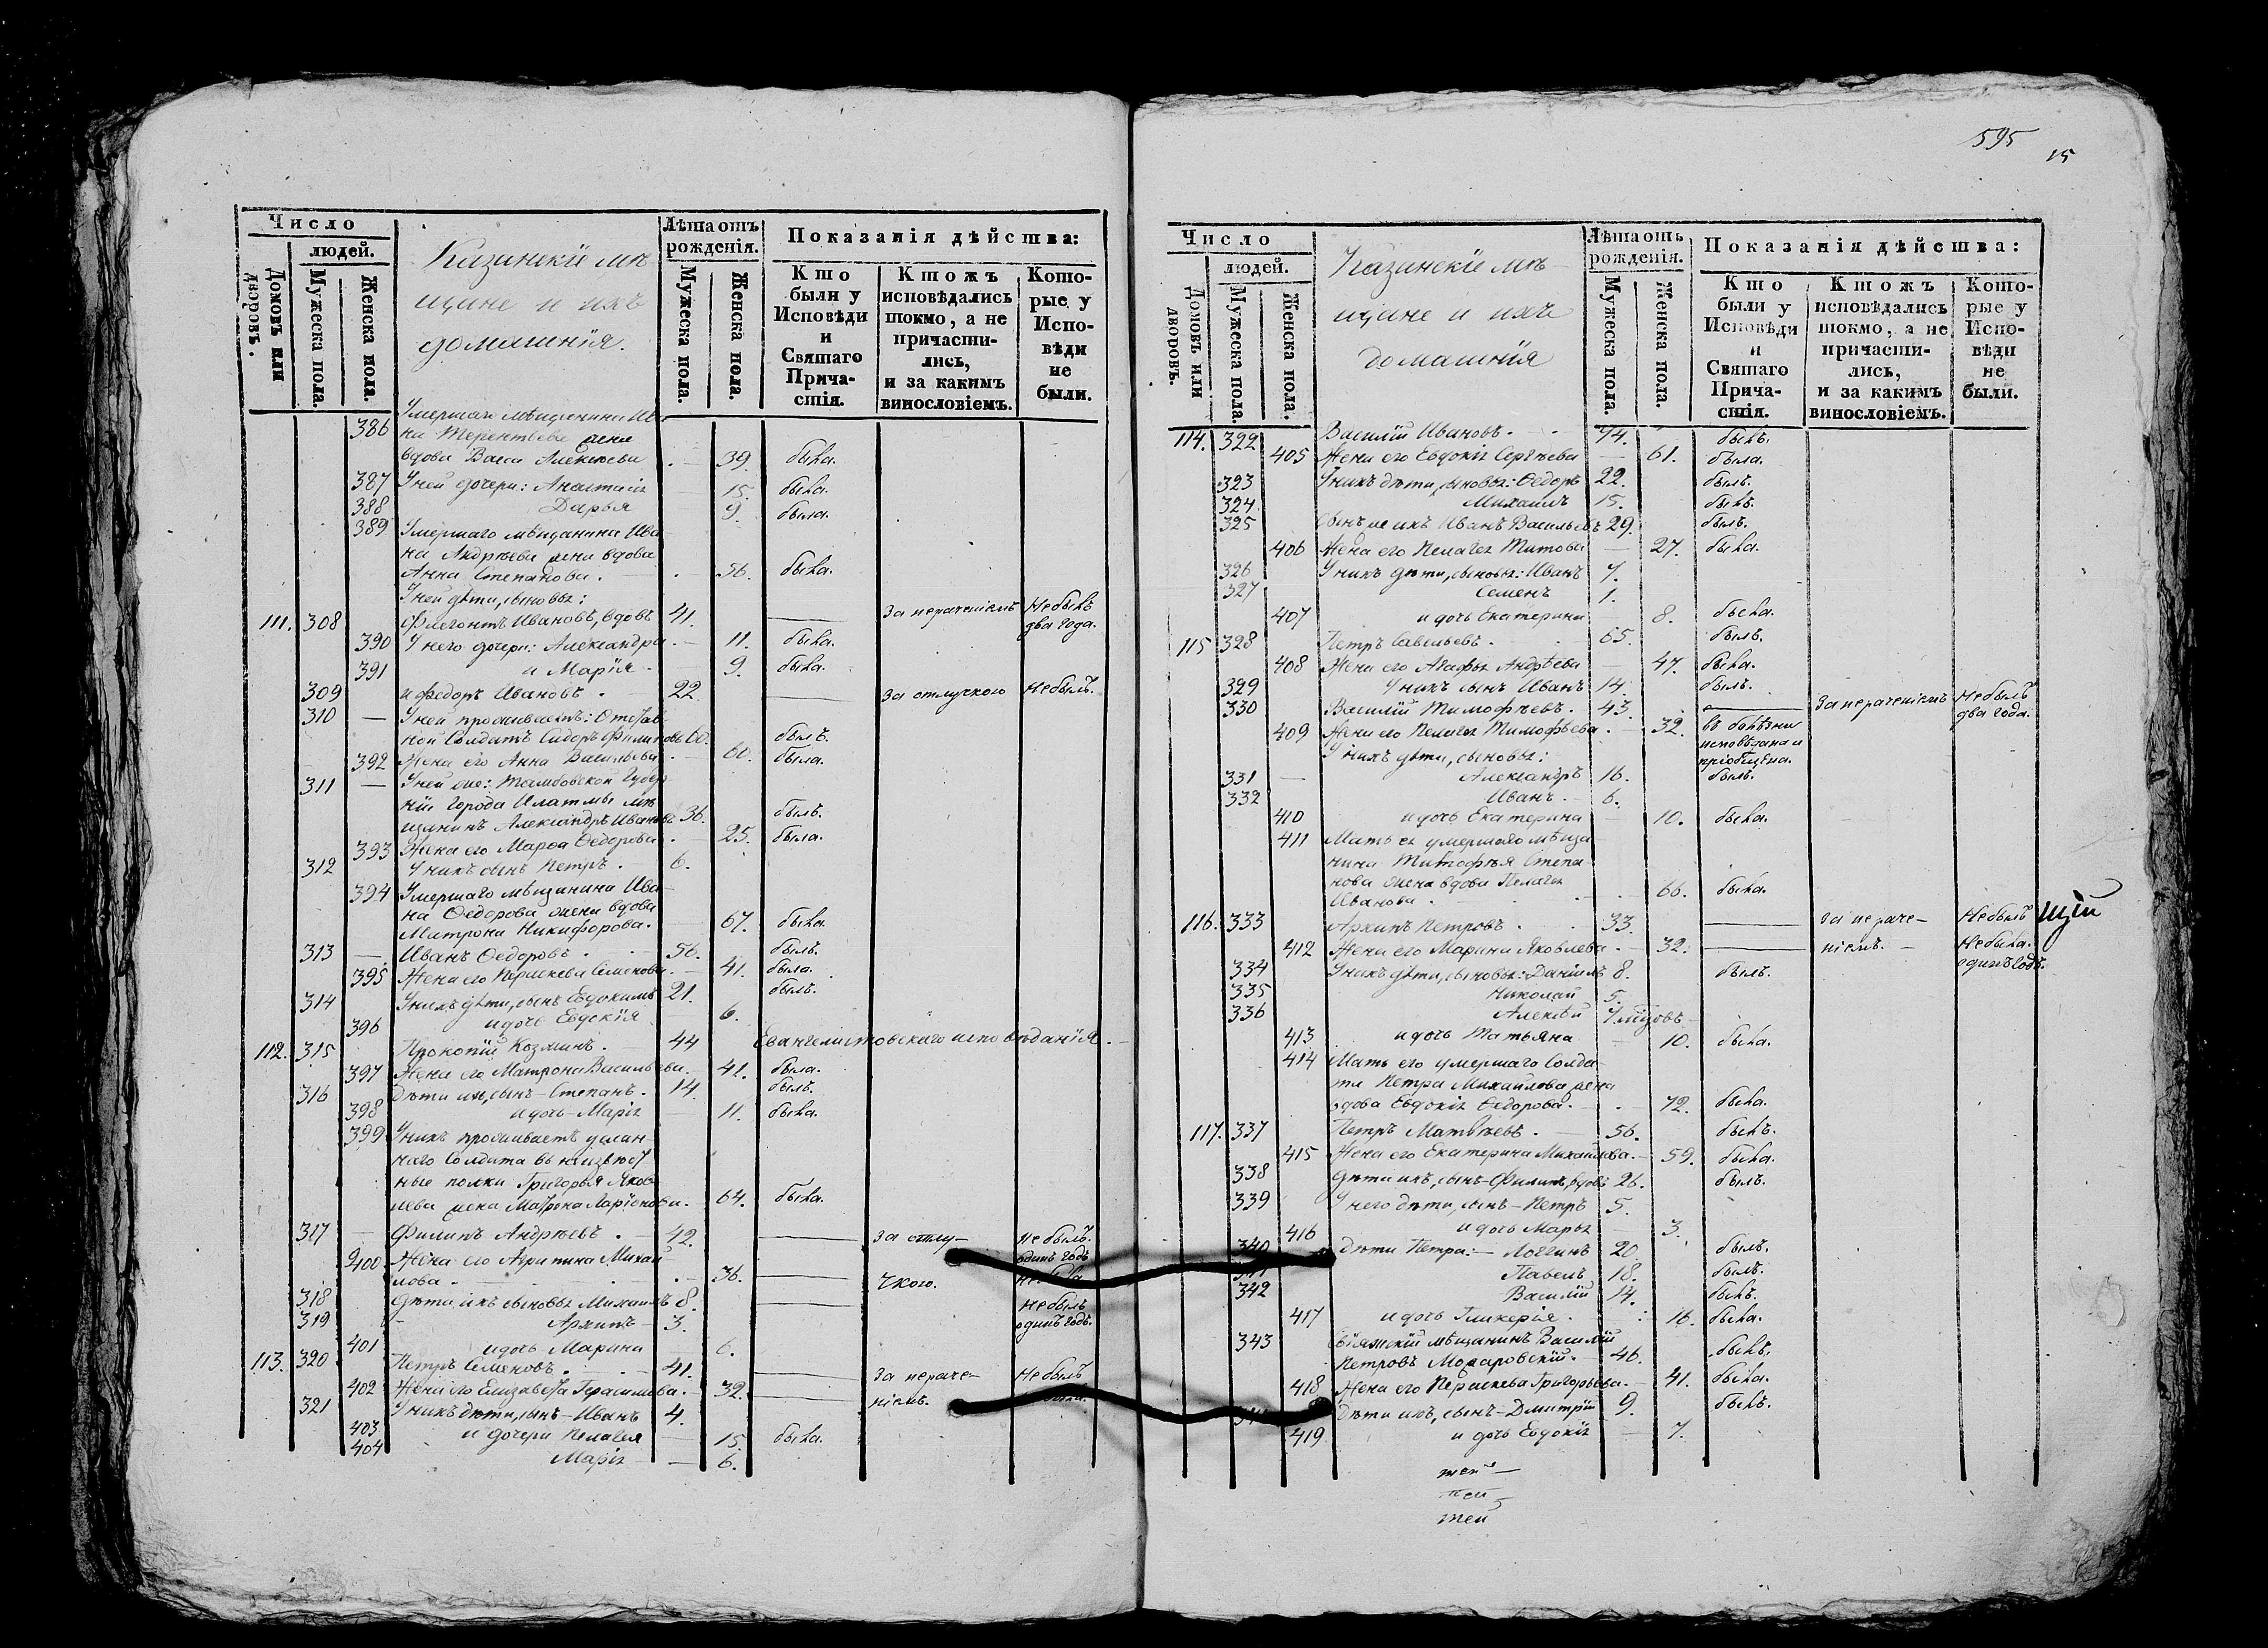 595
15
Число
людей.
Домовъ или дворовъ.
Мужеска пола.
Женска пола.
Казанскіе мѣ-
щане и ихъ
домашнія.
Лѣта отъ рожденія.
Мужеска пола.
Женска пола.
Показанія дѣйства:
Кто были у Исповѣди и Святаго Причастія.
Ктожъ исповѣдались токмо, а не причастились, и за какимъ винословіемъ.
Которые у Исповѣди не были.
386 Умершаго мѣщанина Ива
на Терентьева жена
вдова Васса Алексѣева — 39. была.
387 У ней дочери: Анастасія — 15. была.
388 Дарья — 9. была.
389 Умершаго мѣщанина Ива
на Андрѣева жена вдова
Анна Степанова. — 56. была.
У ней дѣти, сыновья:
111. 308 Флегонтъ Ивановъ, вдовъ 41. — За нераченіемъ Небылъ два года.
390 У него дочери: Александра — 11. была.
391 и Марія — 9. была.
309 и Федоръ Ивановъ. 22. — За отлучкою Небылъ.
310 — У ней проживаетъ: Отстав
ной Солдатъ Сидоръ Филиповъ 60. былъ.
392 Жена его Анна Васильева — 60. была.
311 — У ней же: Тамбовской Губер
ніи города Илатмы мѣ
щанинъ Александръ Ивановъ 36. былъ.
393 Жена его Марѳа Ѳедорова. 25. была.
312 У нихъ сынъ Петръ. — 6.
394 Умершаго мѣщанина Ива
на Ѳедорова жена вдова
Матрона Никифорова. 67. была.
313 — Иванъ Ѳедоровъ. 56. былъ.
395 Жена его Параскева Семенова. — 41. была.
314 У нихъ дѣти, сынъ Евдокимъ 21. былъ.
396 и дочь Евдокія — 6.
112. 315 Прокопій Козминъ. — 44 Евангелистовскаго исповѣданія.
397 Жена его Матрона Васильева. 41. была.
316 Дѣти ихъ, сынъ — Степанъ. 14. былъ.
398 и дочь — Марія — 11. была.
399 У нихъ проживаетъ
наго Солдата
ные полки Григорья Яков
лева жена Матрона Ларіонова. — 64. была.
317 — Филипъ Андрѣевъ. — 42. — За отлу- Не былъ. одинъ годъ
400 Жена его Агрипина Михай
лова — 36. — чкою.
318 Дѣти ихъ сыновья Михаилъ 8. — Небылъ одинъ годъ.
319 Архипъ — 3.
401 и дочь Марина — 6.
113. 320 Петръ Семеновъ. 41. — За нераче- Небылъ
402 Жена его Елизавета Герасимова. — 32. — ніемъ.
321 У нихъ дѣти, сынъ — Иванъ 4.
403 и дочери Пелагея — 15. была.
404 Марія — 6.
Число
людей.
Домовъ или дворовъ.
Мужеска пола.
Женска пола.
Казанскіе мѣ-
щане и ихъ
домашнія
Лѣта отъ рожденія.
Мужеска пола.
Женска пола.
Показанія дѣйства:
Кто были у Исповѣди и Святаго Причастія.
Ктожъ исповѣдались токмо, а не причастились, и за какимъ винословіемъ.
Которые у Исповѣди не были.
114. 322 Василій Ивановъ. 74. былъ.
405 Жена его Евдокія Сергѣева — 61. была.
323 У нихъ дѣти, сыновья: Ѳедоръ 22. былъ.
324 Михаилъ 15. былъ.
325 Сынъ же ихъ Иванъ Васильевъ 29. былъ.
406 Жена его Пелагея Титова — 27. была.
326 У нихъ дѣти, сыновья: Иванъ 7.
327 Семенъ 1.
407 и дочь Екатерина — 8. была.
115 328 Петръ Савельевъ. 65. былъ.
408 Жена его Агафья Андрѣева — 47. была.
329 У нихъ сынъ Иванъ 14. былъ.
330 Василій Тимофѣевъ. 43. — За нераченіемъ Небылъ два года.
409 Жена его Пелагея Тимофѣева. — 32. въ болѣзни исповѣдана и пріобщена.
У нихъ дѣти, сыновья:
331 — Александръ 16. былъ.
332 Иванъ. — 6.
410 и дочь Екатерина — 10. была.
411 Мать ея умершаго мѣща
нина Тимофѣя Степа
нова жена вдова Пелагея
Иванова. 66. была.
116. 333 Архипъ Петровъ. 33. — За нераче- Небылъ щіи
412 Жена его Марина Яковлева. — 32. — ніемъ. — Небыла. одинъ годъ.
334 У нихъ дѣти, сыновья: Даніилъ 8. былъ.
335 Николай 5.
336 Алексѣй
413 и дочь Татьяна — 10. была.
414 Мать его умершаго Солда-
та Петра Михайлова жена
вдова Евдокія Ѳедорова. — 72. была.
117. 337 Петръ Матвѣевъ. — 56. былъ.
415 Жена его Екатерина Михайлова. — 59. была.
338 Дѣти ихъ, сынъ — Филипъ, вдовъ 26. былъ.
339 У него дѣти, сынъ — Петръ 5.
416 и дочь Марья — 3.
340 Дѣти Петра: — Логгинъ 20. былъ.
Павелъ 18. былъ.
342 Василій 14. былъ.
417 и дочь Гликерія. 16. была.
343 Свіяжскій мѣщанинъ Василій
Петровъ 46. былъ.
418 Жена его Параскева Григорьева. — 41. была.
Дѣти ихъ, сынъ — Дмитрій 9. былъ.
419 и дочь Евдокія — 7.